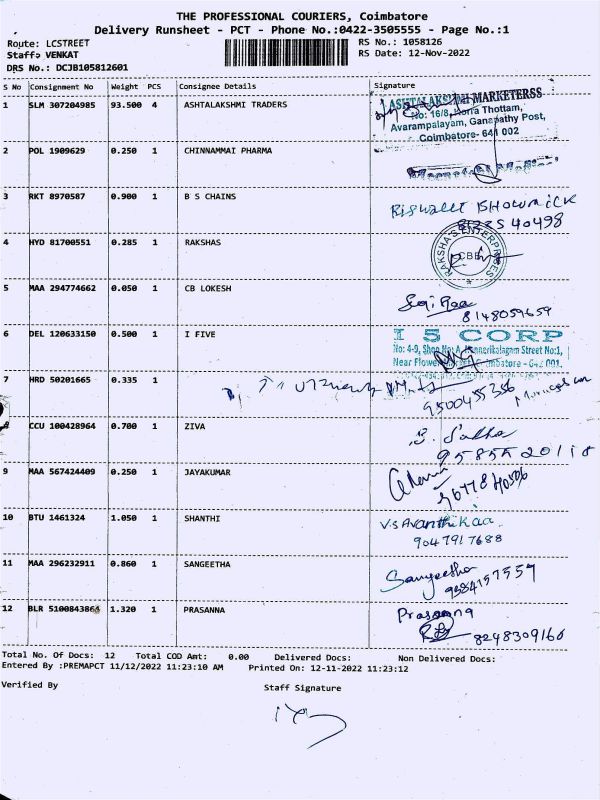 THE PROFESSIONAL COURIERS, Coimbatore
Delivery Runsheet - PCT - Phone No.:0422-3505555 - Page No.:1
Route: LCSTREET
RS No.: 1058126
Staff: VENKAT
RS Date: 12-Nov-2022
DRS No.: DCJB105812601
S No Consignment No Weight PCS Consignee Details Signature
1 SLM 307204985 93.500 4 ASHTALAKSHMI TRADERS
ASHTALAKSHMI MARKETERSS
No: 16/8, Thottam,
Avarampalayam, Ganapathy Post,
Coimbatore- 641 002
2 POL 1909629 0.250 1 CHINNAMMAI PHARMA
3 RKT 8970587 0.900 1 B S CHAINS
4 HYD 81700551 0.285 1 RAKSHAS
RAKSHA'S ENTERPRISES
CBE
5 MAA 294774662 0.050 1 CB LOKESH
8148059659
6 DEL 120633150 0.500 1 I FIVE
I 5 CORP
No: 4-9, Shop No: A, Street No:1,
Near Flower
7 HRD 50201665 0.335 1
8 CCU 100428964 0.700 1 ZIVA
9 MAA 567424409 0.250 1 JAYAKUMAR
10 BTU 1461324 1.050 1 SHANTHI
V.S Avanthikaa
9047917688
11 MAA 296232911 0.860 1 SANGEETHA
Sangeetha
12 BLR 5100843864 1.320 1 PRASANNA
Prasanna
8248309160
Total No. Of Docs: 12 Total COD Amt: 0.00 Delivered Docs: Non Delivered Docs:
Entered By :PREMAPCT 11/12/2022 11:23:10 AM Printed On: 12-11-2022 11:23:12
Verified By Staff Signature